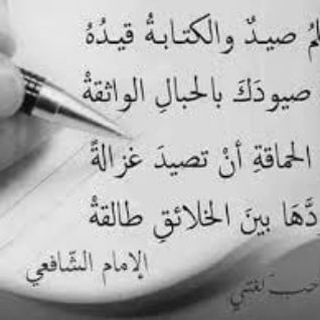 لمُ صيدٌ والكتابةُ قيدُهُ
صيودَكَ بالحبالِ الواثقةْ
الحماقةِ أنْ تصيدَ غزالةً
دَّهَا بينَ الخلائقِ طالقةْ
الإمام الشّافعي